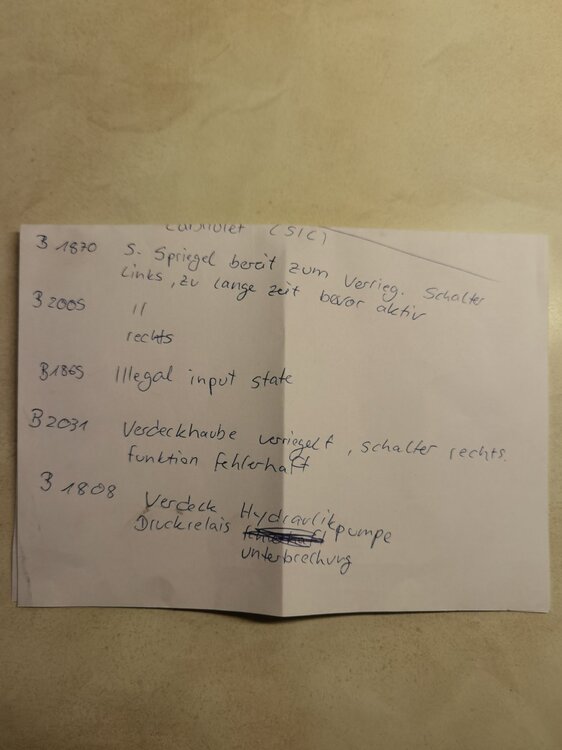 Cabriolet (SIC)
B 1870 S. Spriegel bereit zum Verrieg. Schalter
Links, zu lange zeit bevor aktiv
B 2005 "
rechts
B1865 Illegal input state
B2031 Verdeckhaube verriegelt, schalter rechts.
funktion fehlerhaft
B 1808 Verdeck Hydraulikpumpe
Druckrelais
unterbrechung